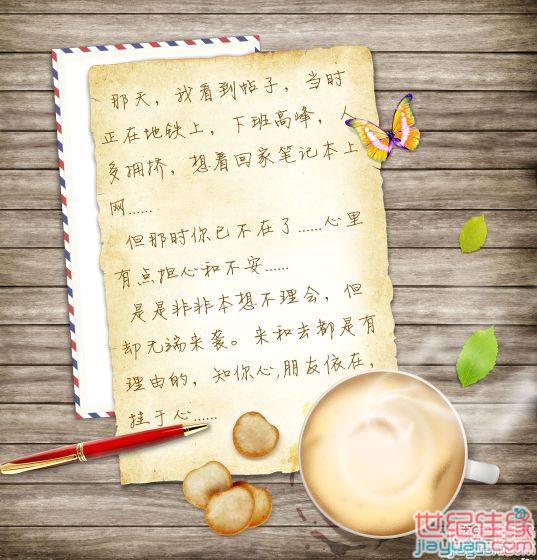 那天，我看到帖子，当时
正在地铁上，下班高峰，人
多拥挤，想着回家笔记本上
网……
但那时你已不在了……心里
有点担心和不安……
是是非非本想不理会，但
却无端来袭。来和去都是有
理由的，知你心，朋友依在，
挂于心……
世纪佳缘
jiayuan.com